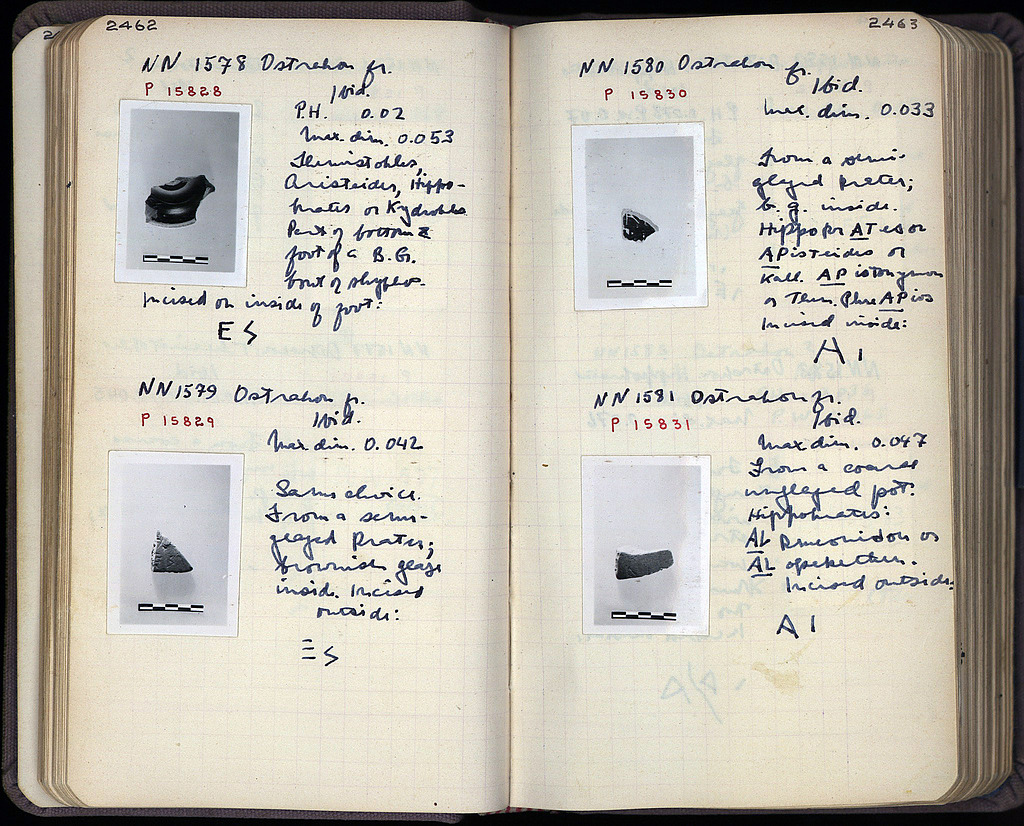 2462
NN 1578 Ostrakon fr.
P 15828
Ibid.
P.H. 0.02
Max. dim. 0.053
Themistokles,
Aristeides, Hippo-
krates or Kydrokles
Part of bottom &
foot of a B.G.
bowl or skyphos.
Incised on inside of foot:
E S
NN 1579 Ostrakon fr.
P 15829
Ibid.
Max. dim. 0.042
Same choice.
From a semi-
glazed krater;
brownish glaze
inside. Incised
outside:
Ξ S
2463
NN 1580 Ostrakon fr.
P 15830
Ibid.
Max. dim. 0.033
From a semi-
glazed krater;
b.g. inside.
HippokrATes or
APisteides or
Kall. APistonymou
or Them. PhreAPios
Incised inside:
A I
NN 1581 Ostrakon fr.
P 15831
Ibid.
Max dim. 0.047
From a coarse
unglazed pot.
Hippokrates:
ALkmeonidou or
ALopekethen.
Incised outside.
A I